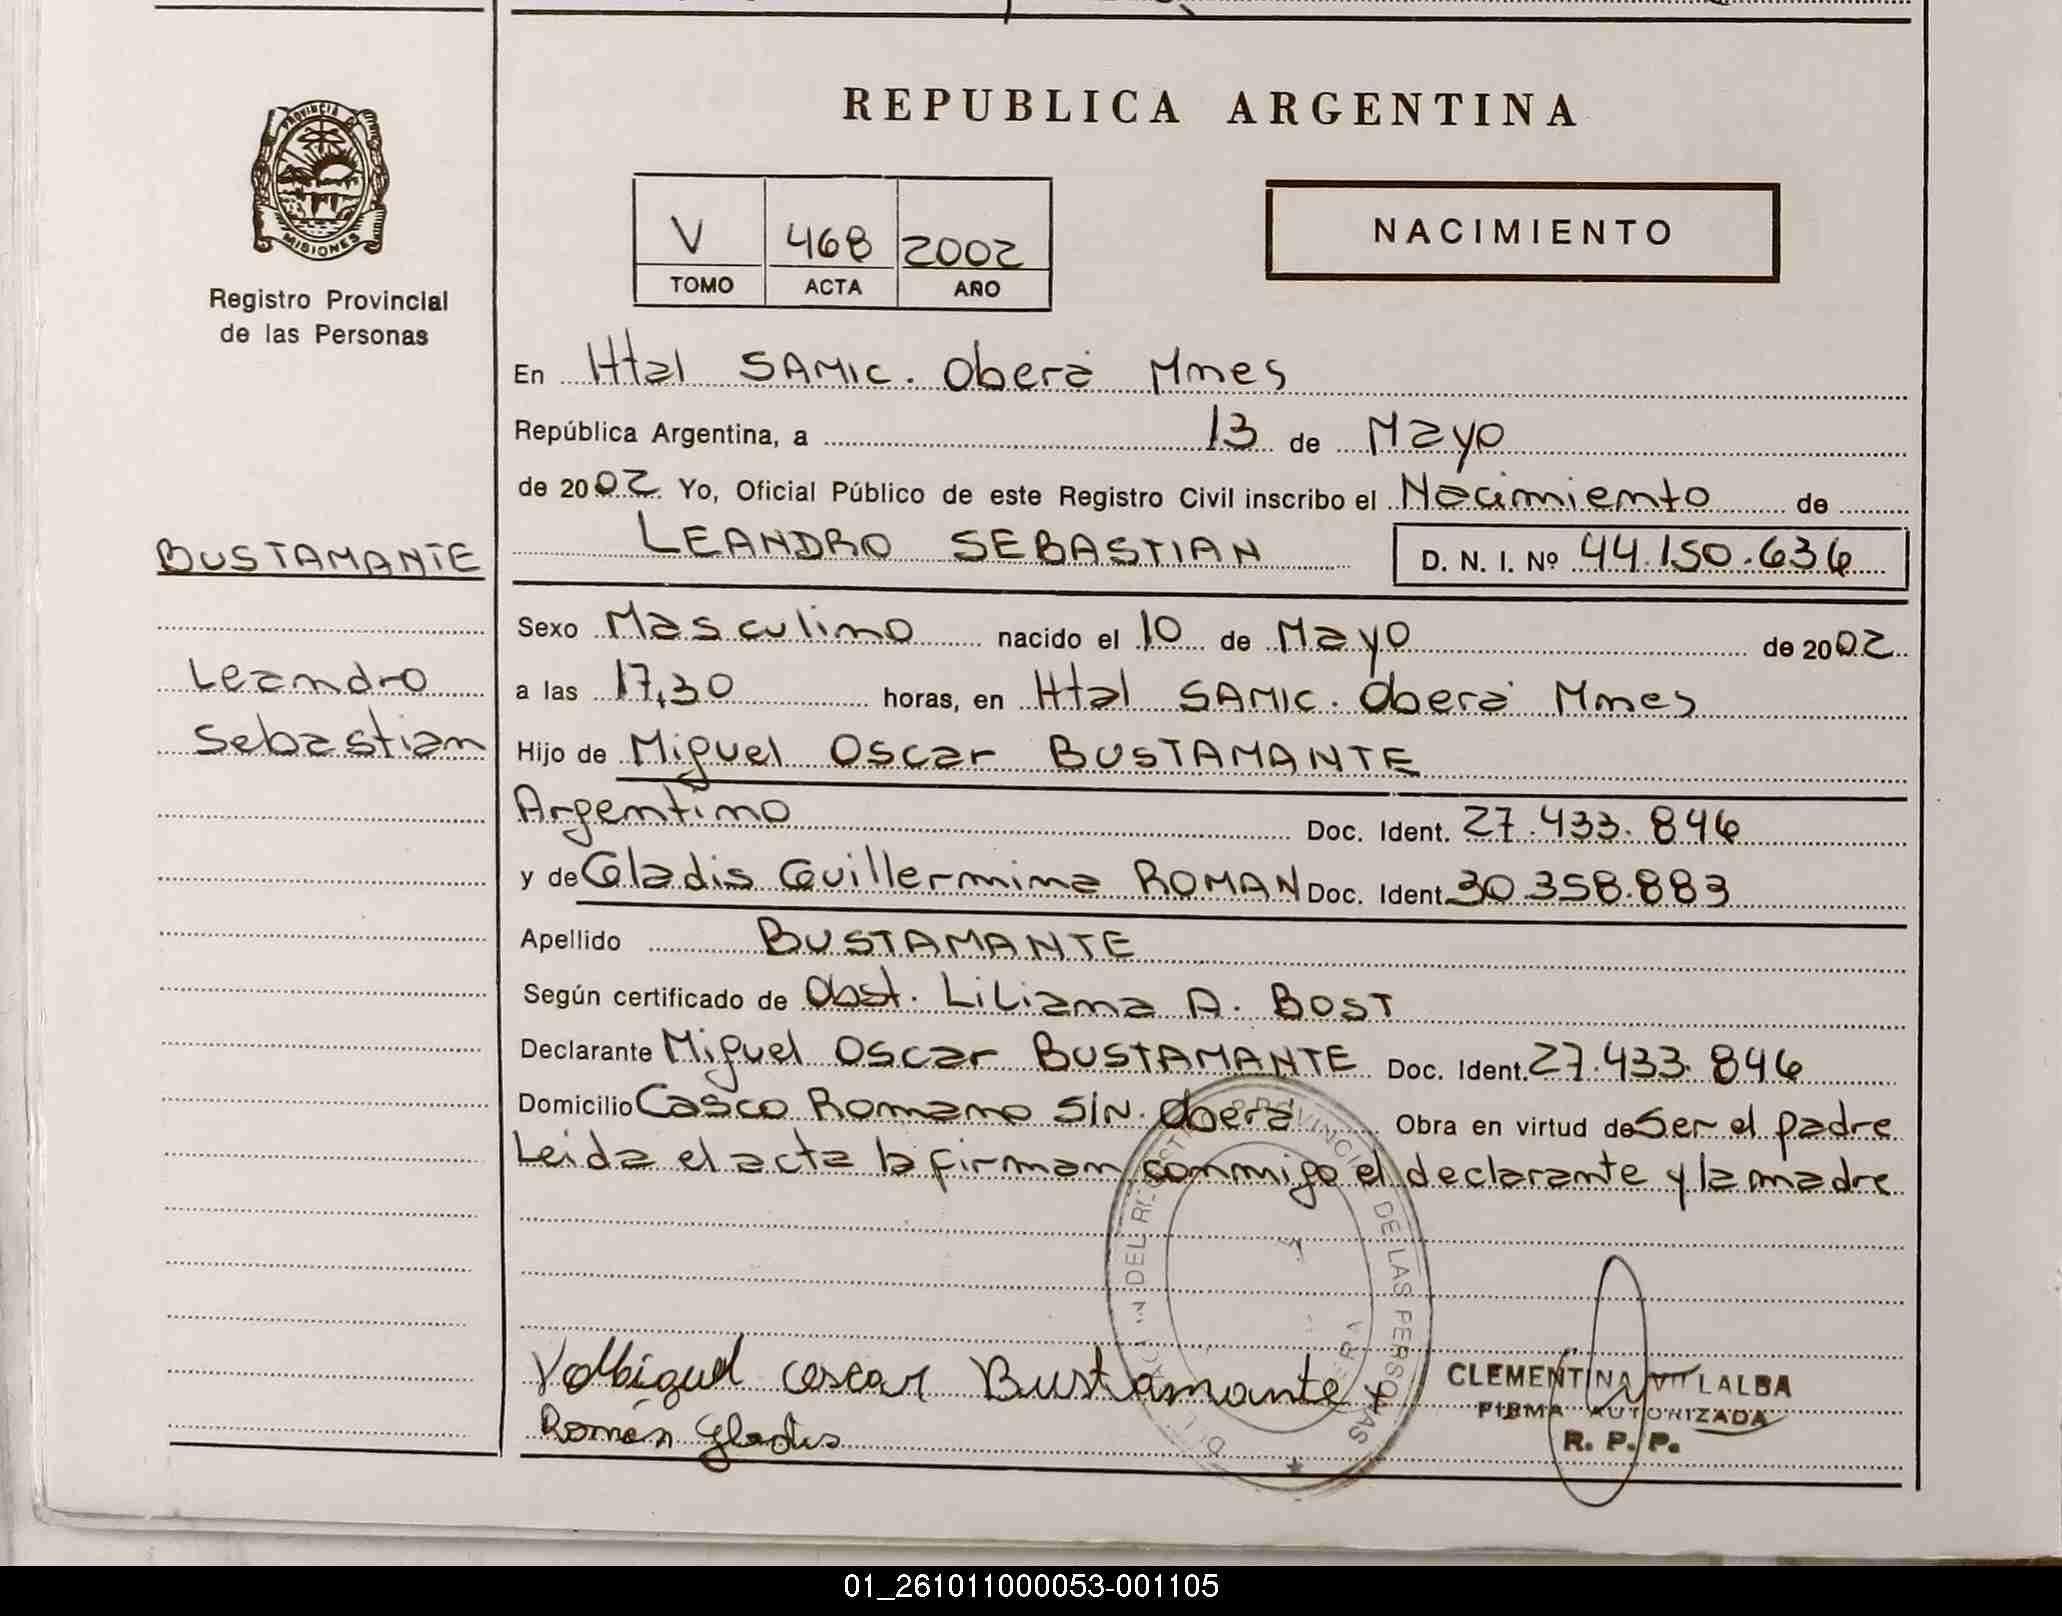 REPUBLICA ARGENTINA
PROVINCIA DE
MISIONES
Registro Provincial
de las Personas
V 468 2002
TOMO ACTA AÑO
NACIMIENTO
En Htal SAMIC. Oberá Mnes
República Argentina, a 13 de Mayo
de 2002 Yo, Oficial Público de este Registro Civil inscribo el Nacimiento de
LEANDRO SEBASTIAN D. N. I. Nº 44.150.636
BUSTAMANTE
Leandro
Sebastian
Sexo Masculino nacido el 10 de Mayo de 2002
a las 17,30 horas, en Htal SAMIC. Oberá Mnes
Hijo de Miguel Oscar BUSTAMANTE
Argentino Doc. Ident. 27.433.846
y de Gladis Guillermina ROMAN Doc. Ident. 30.358.883
Apellido BUSTAMANTE
Según certificado de Obst. Liliana A. BOST
Declarante Miguel Oscar BUSTAMANTE Doc. Ident. 27.433.846
Domicilio Casco Romano S/N. Oberá Obra en virtud de Ser el padre
Leida el acta la firman conmigo el declarante y la madre
PROVINCIAL DE LAS PERSONAS
oscar Bustamante
Román Gladis
CLEMENTINA VILLALBA
FIRMA AUTORIZADA
R. P. P.
01_261011000053-001105